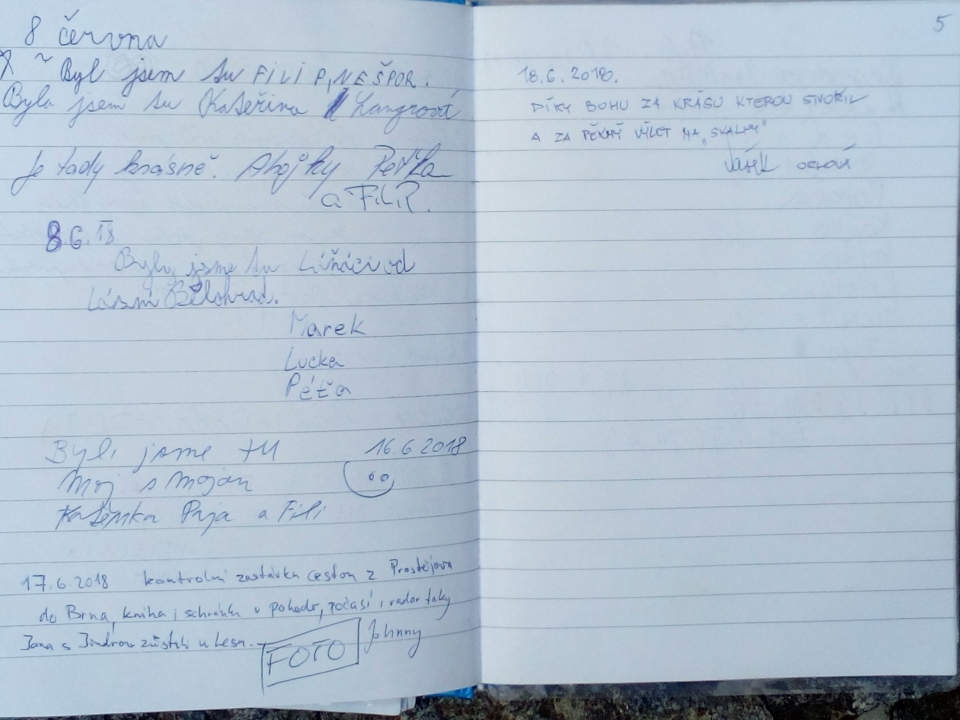 8 června
Byl jsem tu FILIP, NEŠPOR.
Byla jsem tu Kateřina
Je tady krásně. Ahojky Peťka
a FILIP.
8.6.18
Byly jsme tu Liňáci od
Lázní Bělohrad.
Marek
Lucka
Péťa
Byli jsme tu 16.6.2018
Moj s Mojan
Katemka Pája a Fili
17.6.2018 kontrolní zastávka cestou z Prostějova
do Brna, kniha i schránka v pohodě, počasí i radar taky
Jana s Jindrou zůstali u lesa.
FOTO Johnny
5
18.6.2018.
DÍKY BOHU ZA KRÁSU KTEROU STVOŘIL
A ZA PĚKNÝ VÝLET NA „SKALKY"